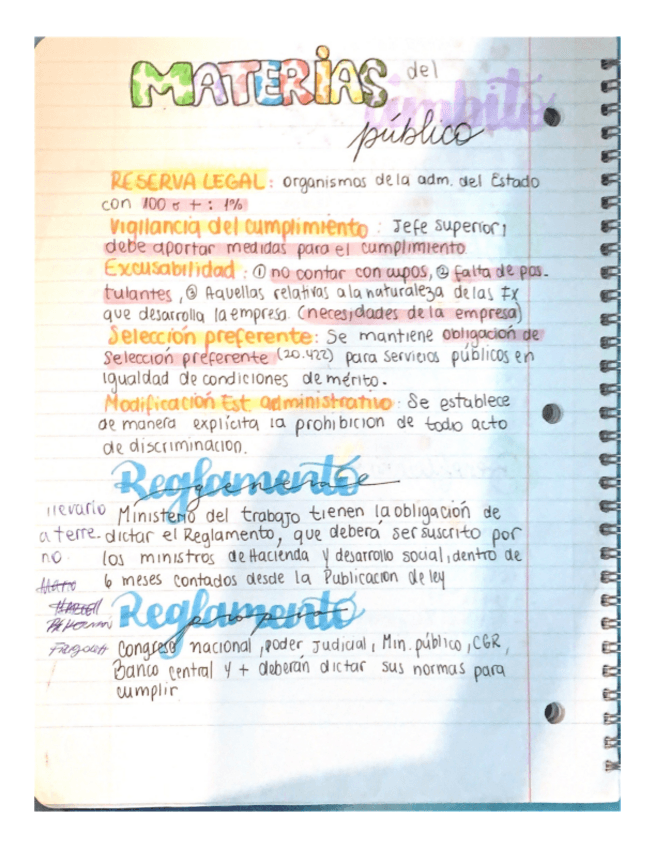 MATERIAS del
ámbito
público
RESERVA LEGAL: organismos de la adm. del Estado
con 100 o + : 1%
Vigilancia del cumplimiento : Jefe superior,
debe aportar medidas para el cumplimiento
Excusabilidad : ① no contar con cupos, ② falta de pos-
tulantes, ③ Aquellas relativas a la naturaleza de las Fx
que desarrolla la empresa. (necesidades de la empresa)
Selección preferente: Se mantiene obligación de
Selección preferente (20.422) para servicios públicos en
igualdad de condiciones de mérito.
Modificación Est administrativo: Se establece
de manera explícita la prohibicion de todo acto
de discriminacion.
Reglamento
general
Ministerio del trabajo tienen la obligación de
dictar el Reglamento, que deberá ser suscrito por
los ministros de Hacienda y desarrollo social, dentro de
6 meses contados desde la Publicacion de ley
llevarlo
a terre-
no
Reglamento
Congreso nacional, poder Judicial, Min. público, CGR,
Banco central y + deberán dictar sus normas para
cumplir